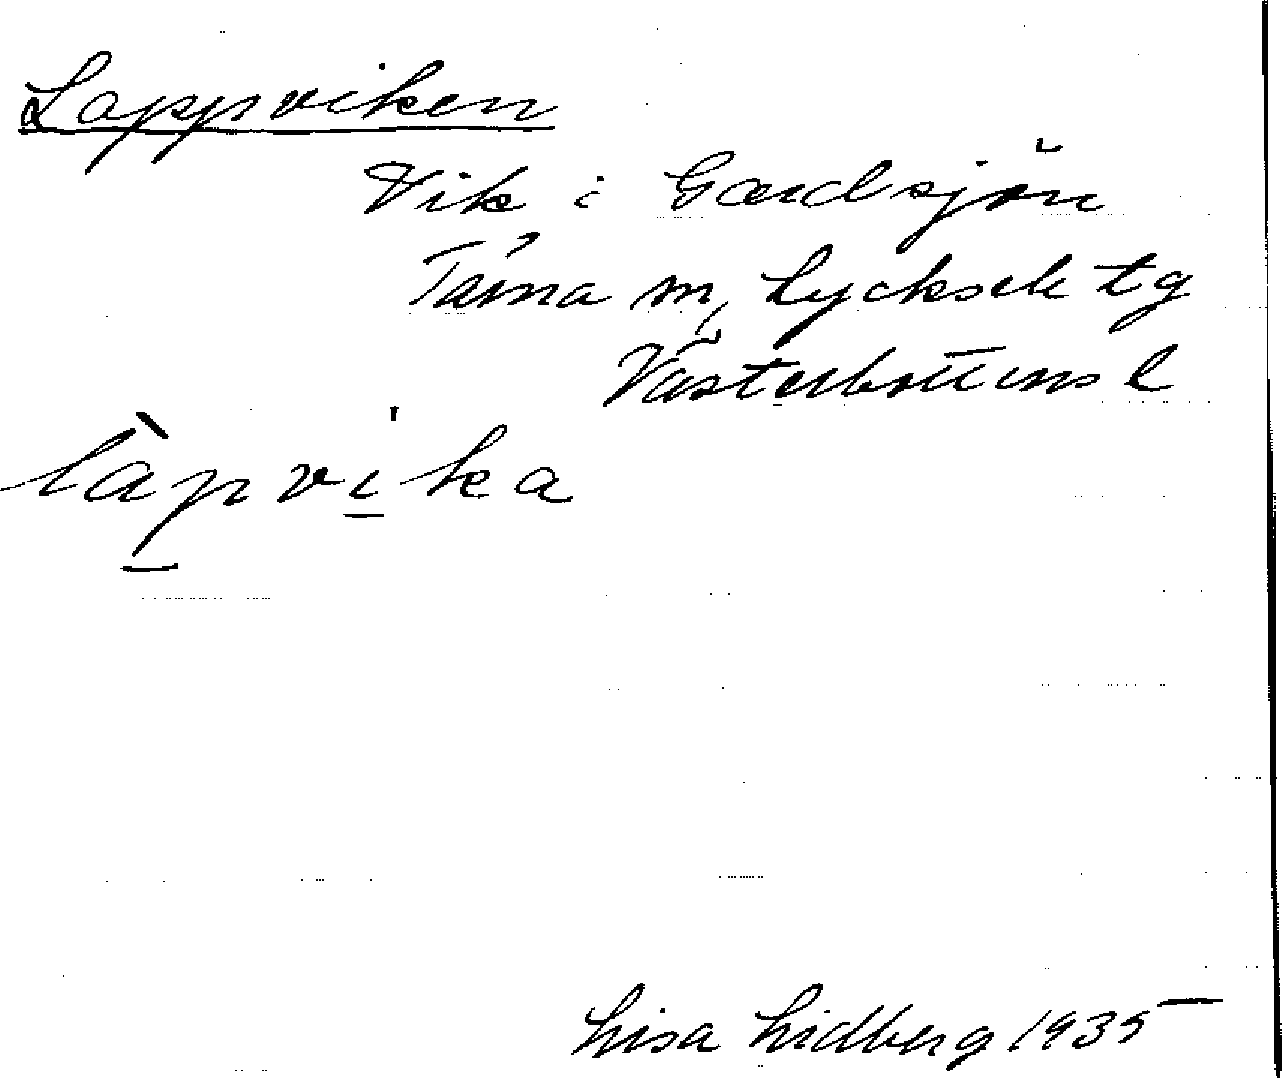 Lappviken
Vik i Gardsjön
Tärna m, Lycksele tg
Västerbottens l
làpvika
Lisa Lidberg 1935